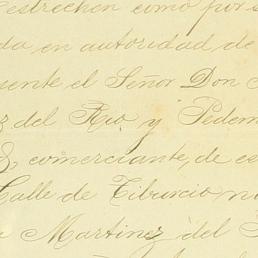 estrechen como por s
da en autoridad de
sente el Señor Don
z del Rio y Pedem
S, comerciante, de es
Calle de Tiburcio n
e Martinez del